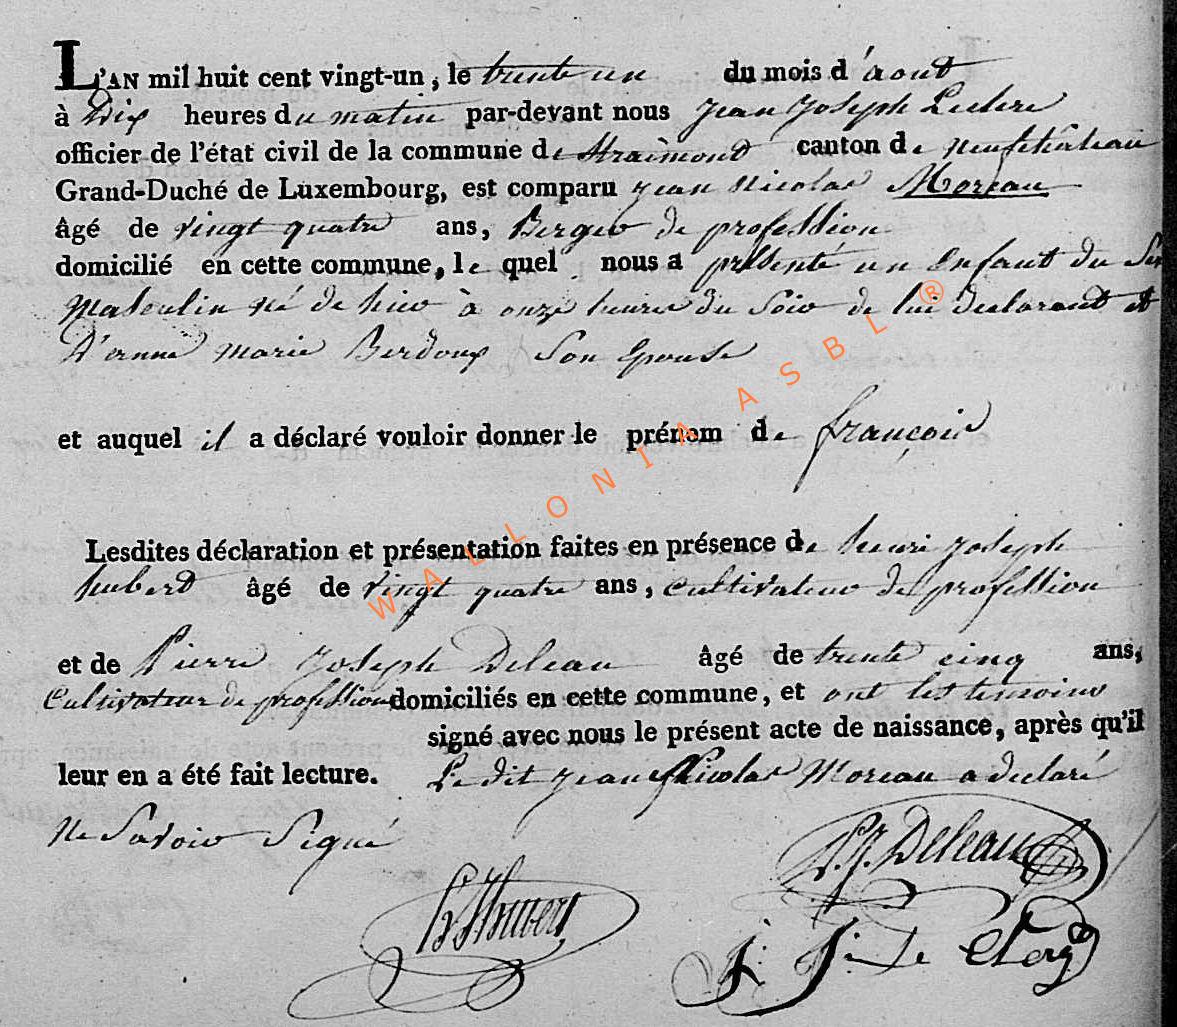 L'AN mil huit cent vingt-un, le trente un du mois d'aout
à Dix heures du matin par-devant nous Jean Joseph Leclere
officier de l'état civil de la commune de Straimont canton de neufchâteau
Grand-Duché de Luxembourg, est comparu jean Nicolas Moreau
âgé de vingt quatre ans, Berger de profession
domicilié en cette commune, lequel nous a présenté un Enfant du Sex
Masculin né de hier à onze heures du Soir de lui declarant et
D'anne marie Berdoux Son Epouse
et auquel il a déclaré vouloir donner le prénom de françois
Lesdites déclaration et présentation faites en présence de henri joseph
hubert âgé de vingt quatre ans, cultivateur de profession
et de Pierre Joseph Deleau âgé de trente cinq ans,
Cultivateur de profession domiciliés en cette commune, et ont les temoins
signé avec nous le présent acte de naissance, après qu'il
leur en a été fait lecture. Le dit jean Nicolas Moreau a declaré
Ne Savoir Signé
P.J. Deleau
J. J. Le Clerq
WALLONIA ASBL ®